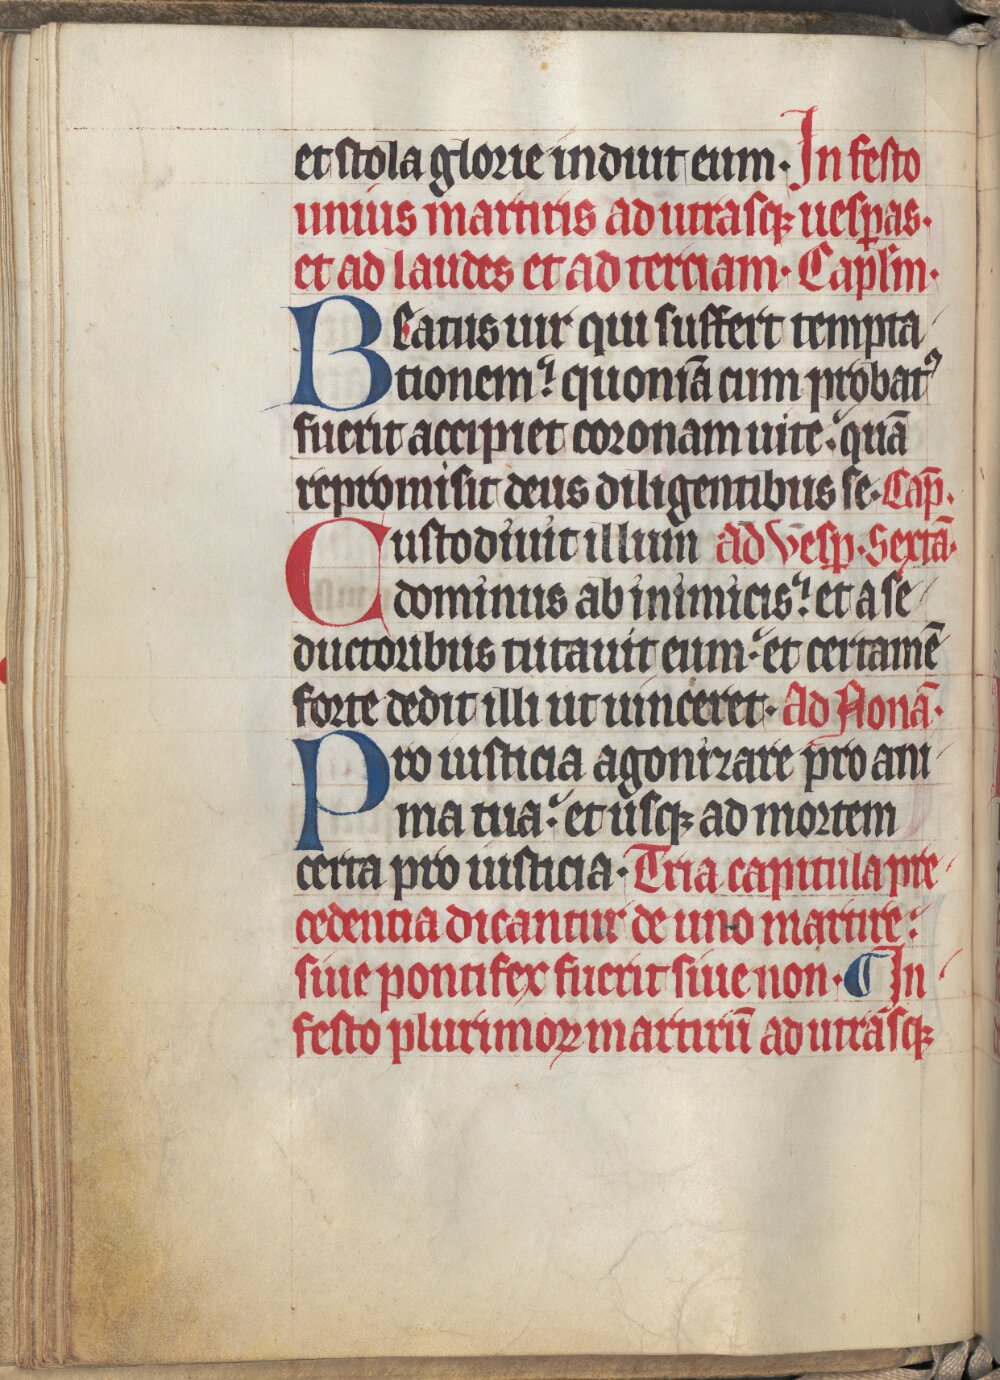 et stola glorie induit eum. In festo
unius martiris ad utrasqꝫ uesꝑas.
et ad laudes et ad terciam. Capl̄m.
Beatus uir qui suffert tempta
tionem? quoniā cum probatꝰ
fuerit accipiet coronam uite: quā
repromisit deus diligentibus se. Cap̄.
Custodiuit illum Ad Vesp̄. Sextā.
dominus ab inimicis? et a se
ductoribus tutauit eum: et certamē
forte dedit illi ut uinceret. Ad Nonā.
Pro iusticia agonizare pro ani
ma tua: et usqꝫ ad mortem
certa pro iusticia. Tria capitula pre
cedentia dicantur de uno martire:
siue pontifex fuerit siue non. ¶ In
festo plurimoꝝ martirū ad utrasqꝫ